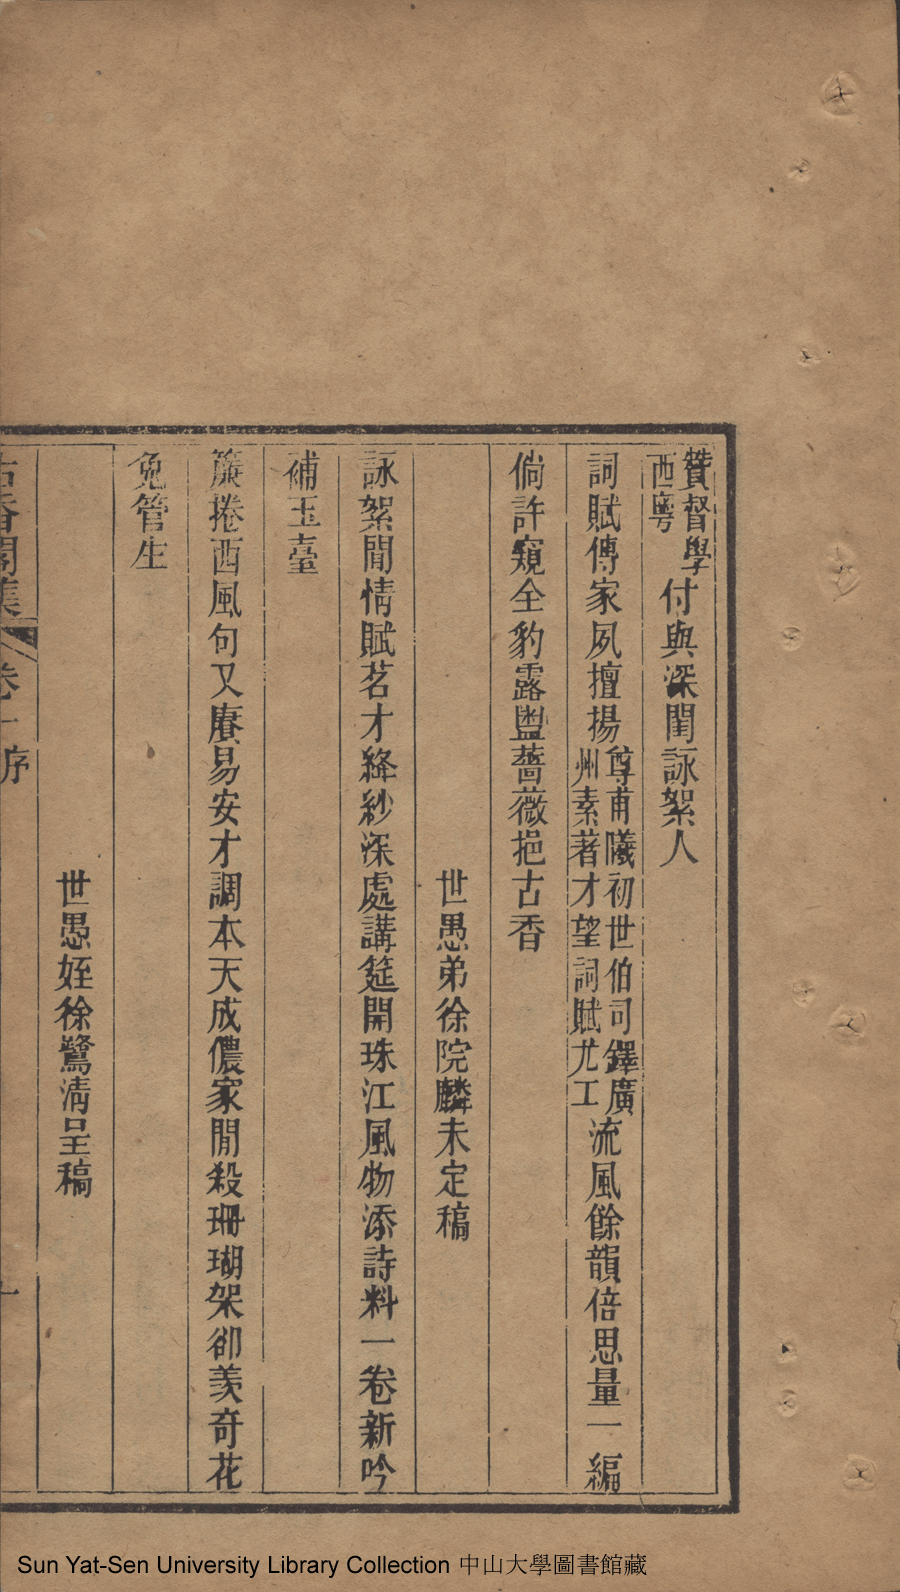 贊督學西粵付與深閨詠絮人
詞賦傳家夙擅揚尊甫曦初世伯司鐸廣州素著才望詞賦尤工流風餘韻倍思量一編
倘許窺全豹露盥薔薇挹古香
世愚弟徐院麟未定稿
詠絮閒情賦茗才絳紗深處講筵開珠江風物添詩料一卷新吟
補玉臺
簾捲西風句又賡易安才調本天成儂家閒殺珊瑚架卻羨奇花
兔管生
世愚姪徐鷺清呈稿
古香閣集 卷一序 一
Sun Yat-Sen University Library Collection 中山大學圖書館藏